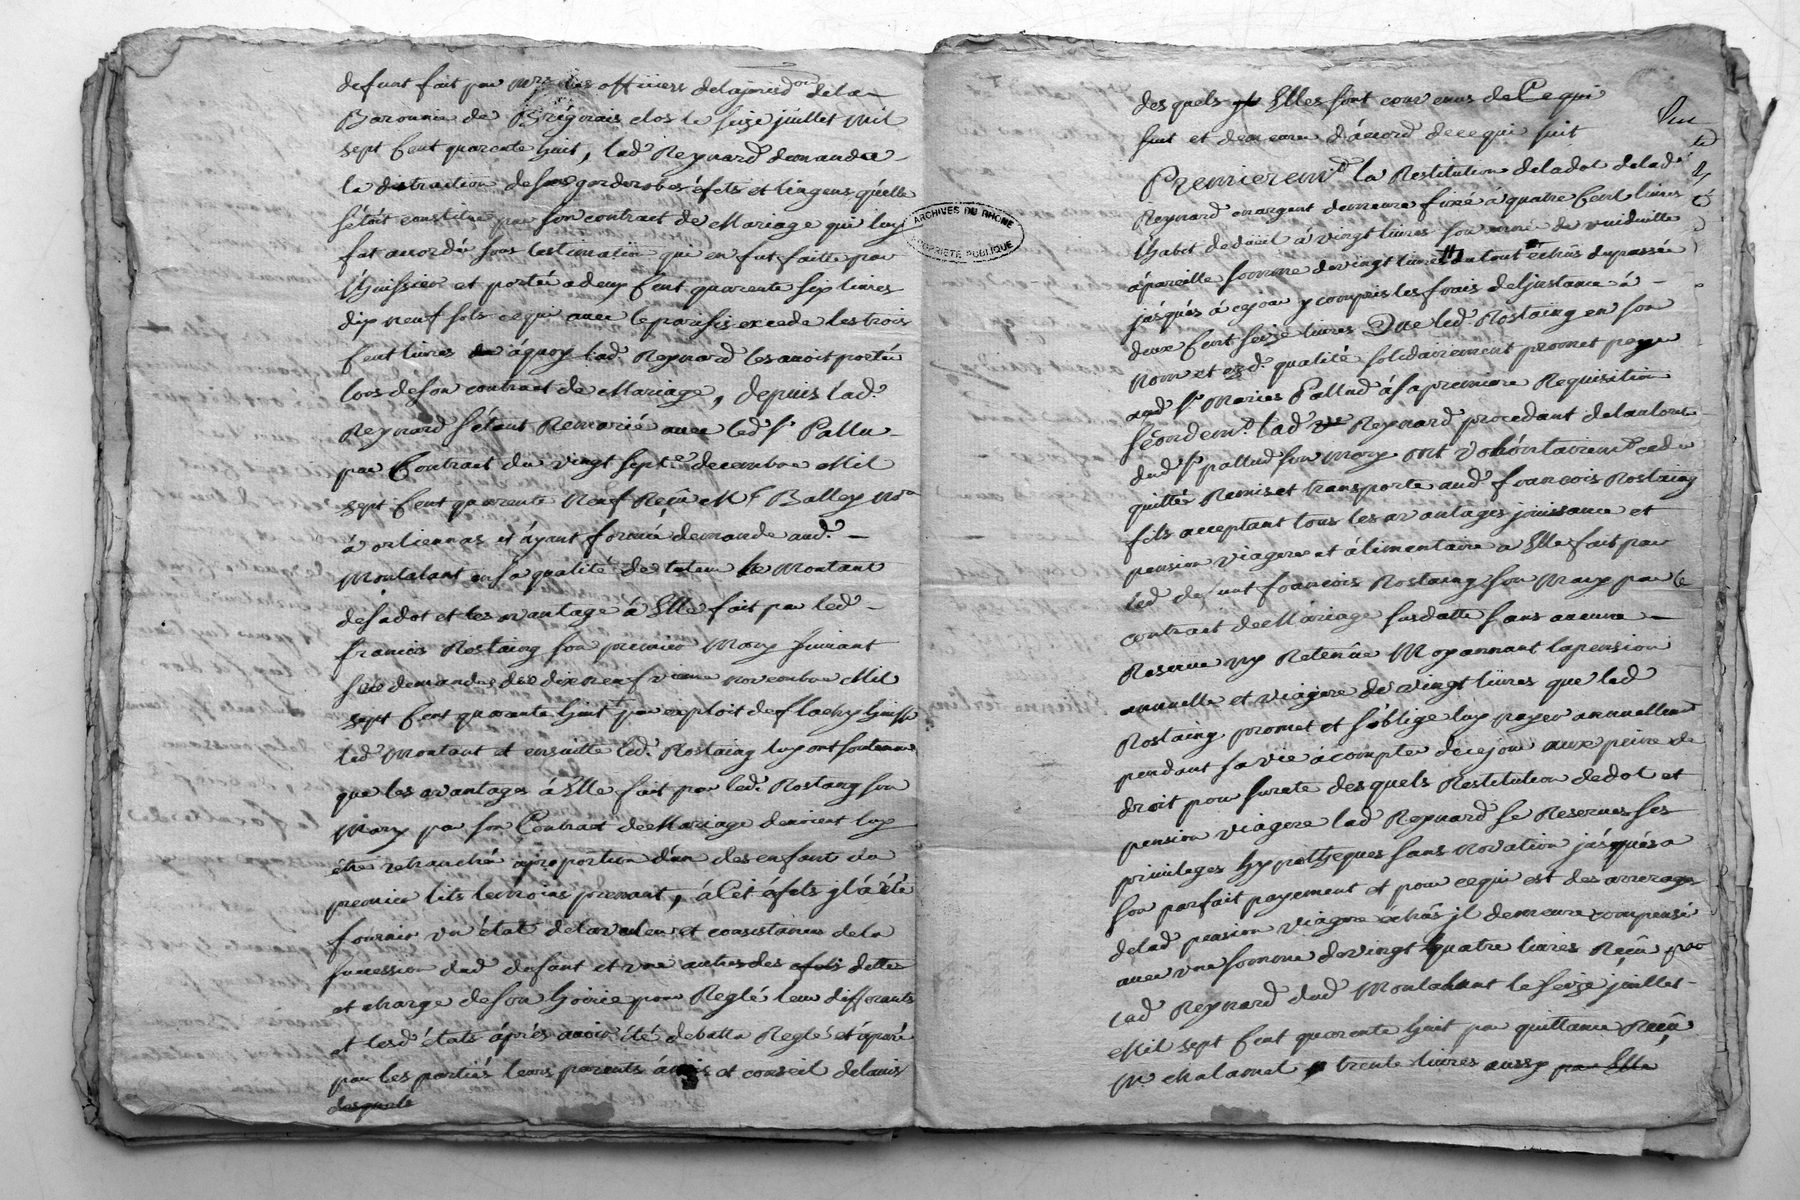 defunt fait par Mrs les officiers de la jurisdon de la
Baronnie de Brignais clos le seize juillet mil
sept Cent quarente huit, lad Reynard demanda
la distraction de ses garderobes éfets et lingens qu'elle
s'étoit constitué par son contract de Mariage qui luy
fut accordée sous l'estimation qui en fut faitte par
l'huissier et portée a deux Cent quarente six livres
dix neuf sols ce qui avec le parisis excede les trois
Cent livres à quoy lad Reynard les avoit portée
lors de son contract de Mariage, depuis lad.
Reynard s'étant Remarié avec led Sr Pallu
par Contract du vingt sept e decembre Mil
sept Cent quarente Neuf Reçu Me Balley Nore
à orliennas et áyant formé demande aud.
Montalant en sa qualité de tuteur le Montant
de sa dot et les avantage à Elle fait par led
francois Rostaing son premier Mary suivant
sa demande du dix neuf vieme novembre Mil
sept Cent quarante huit par exploit de flachy huissr
led Montant et ensuitte led. Rostaing luy ont soutenu
que les avantages à Elle fait par led. Rostaing son
Mary par son Contract de Mariage devoient luy
être retranché aproportion d'un des enfant du
premier lits le moins prenant, à Cet efets jl a été
fournir un état de la valeur et consistance de la
succession dud defunt et une autre des efets dette
et charge de son hoirie pour Reglé leur differants
et lesd états áprés avoir été debattu Reglé et áparé
par les partiés leurs parents ámis et conseil de lavis
desquels
des quels Elles sont convenus de Ce qui
suit et demeuré d'ácord de ce qui suit
Premieremt la Restitution de la dot de lad
Reynard en argent demeure fixé à quatre Cent livres
l'habit de deüil á vingt livres son année de vuiduitté
ápareille somme de vingt livres du tout échûs du passée
jusqués à ce jour y compris les frais de l'jnstance á
deux Cent seize livres Que led Rostaing en son
nom et esd. qualité solidairement promet payer
aud Sr Mariés Pallud á sa premiere Requisition
Secondemt. lad ve Reynard procedant de l'autorité
dud Sr pallud son mary ont volontairemt cedé
quitté Remis et transporté aud francois Rostaing
fils acceptant tous les avantages jouissance et
pension viagere et álimentaire a Elle fait par
led defunt francois Rostaing son Mary par le
contract de Mariage susdatte sans aucune
Reserve ny Retenüe Moyannant la pension
annuelle et viágere de vingt livres que led
Rostaing promet et s'oblige luy payer annuellemt
pendant sa vie à compter de ce jour aux peine de
droit pour surete desquels Restitution de dot et
pension viagere lad Reynard se Reserves ses
privileges hypotheques sans novation jusqués a
son parfait payement et pour ce qui est des arrerages
de lad pension viagere échûs jl demeure compensé
avec une somme de vingt quatre livres Reçu par
lad Reynard dud Montalant le seize juillet
Mil sept Cent quarente huit par quittance Reçu
Me chalamel trente livres aussy par Elle
ARCHIVES DU RHONE
PROPRIÉTÉ PUBLIQUE